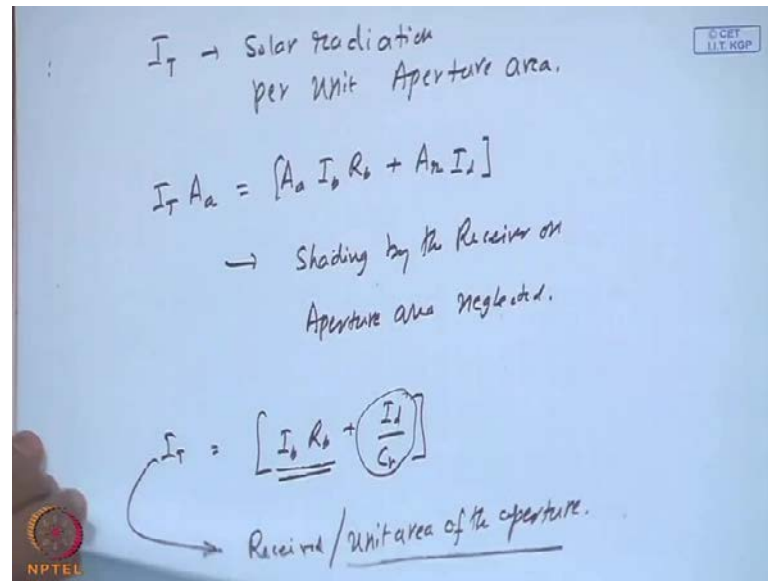 I_T → Solar radiation
per unit Aperture area.
© CET
I.I.T. KGP
I_T A_a = [A_a I_b R_b + A_r I_d]
→ Shading by the Receiver on
Aperture area neglected.
I_T = [I_b R_b + I_d / C_r]
→ Received / unit area of the aperture.
NPTEL